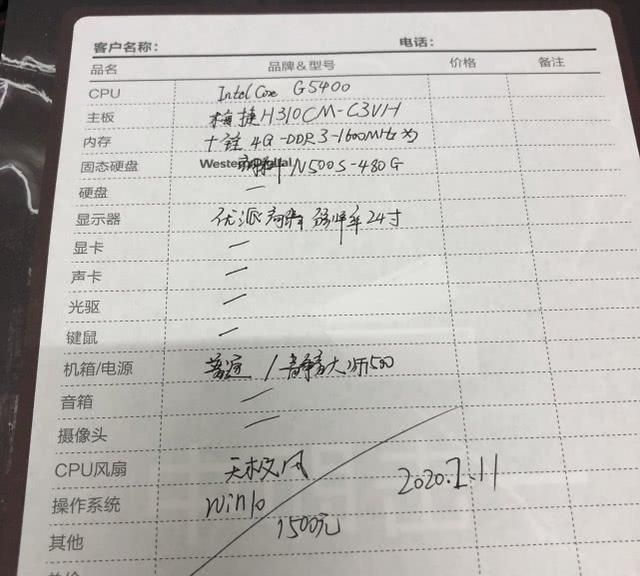 客户名称： 电话：
品名 品牌&型号 价格 备注
CPU Intel Core G5400
主板 梅捷H310CM-C3VH
内存 十铨 4G-DDR3-1600MHz
固态硬盘 Western Digital N500S-480G
硬盘 —
显示器 优派 24寸
显卡 —
声卡 —
光驱 —
键鼠 —
机箱/电源 / 静音大师500
音箱 —
摄像头 —
CPU风扇 天极风
操作系统 Win10 2020.1.11
其他 1500元